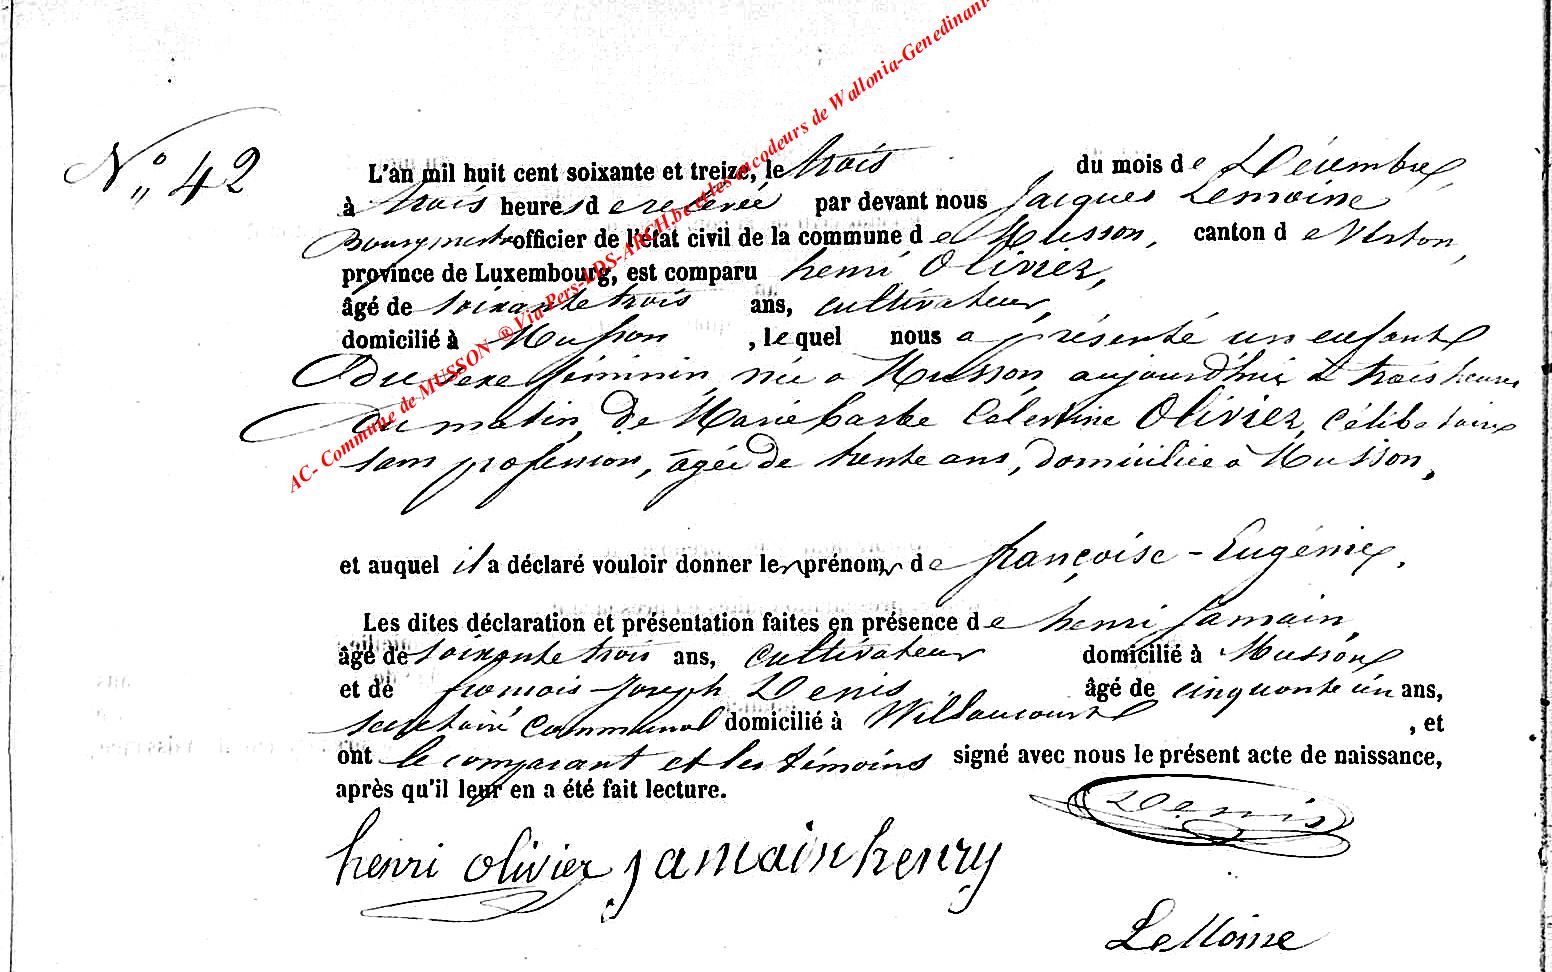 N° 42
L'an mil huit cent soixante et treize, le trois du mois de Décembre,
à trois heures de relevée par devant nous Jacques Lemoine
Bourgmestre officier de l'état civil de la commune de Musson, canton de Virton,
province de Luxembourg, est comparu henri Olivier,
âgé de soixante trois ans, cultivateur,
domicilié à Musson, lequel nous a présenté un enfant
du sexe féminin, née à Musson, aujourd'hui à trois heures
du matin, de Marie barbe Célestine Olivier, Célibataire
sans profession, âgée de trente ans, domiciliée à Musson,
et auquel il a déclaré vouloir donner les prénoms de françoise - Eugénie.
Les dites déclaration et présentation faites en présence de henri Jamain,
âgé de soixante trois ans, cultivateur domicilié à Musson
et de françois Joseph Denis, âgé de cinquante un ans,
secrétaire communal domicilié à Willancourt, et
ont le comparant et les témoins signé avec nous le présent acte de naissance,
après qu'il leur en a été fait lecture.
Denis
henri olivier jamain henry
LeMoine
AC- Commune de MUSSON ® Via Pers-LDS-ARCH.be et les encodeurs de Wallonia-Genedinant-